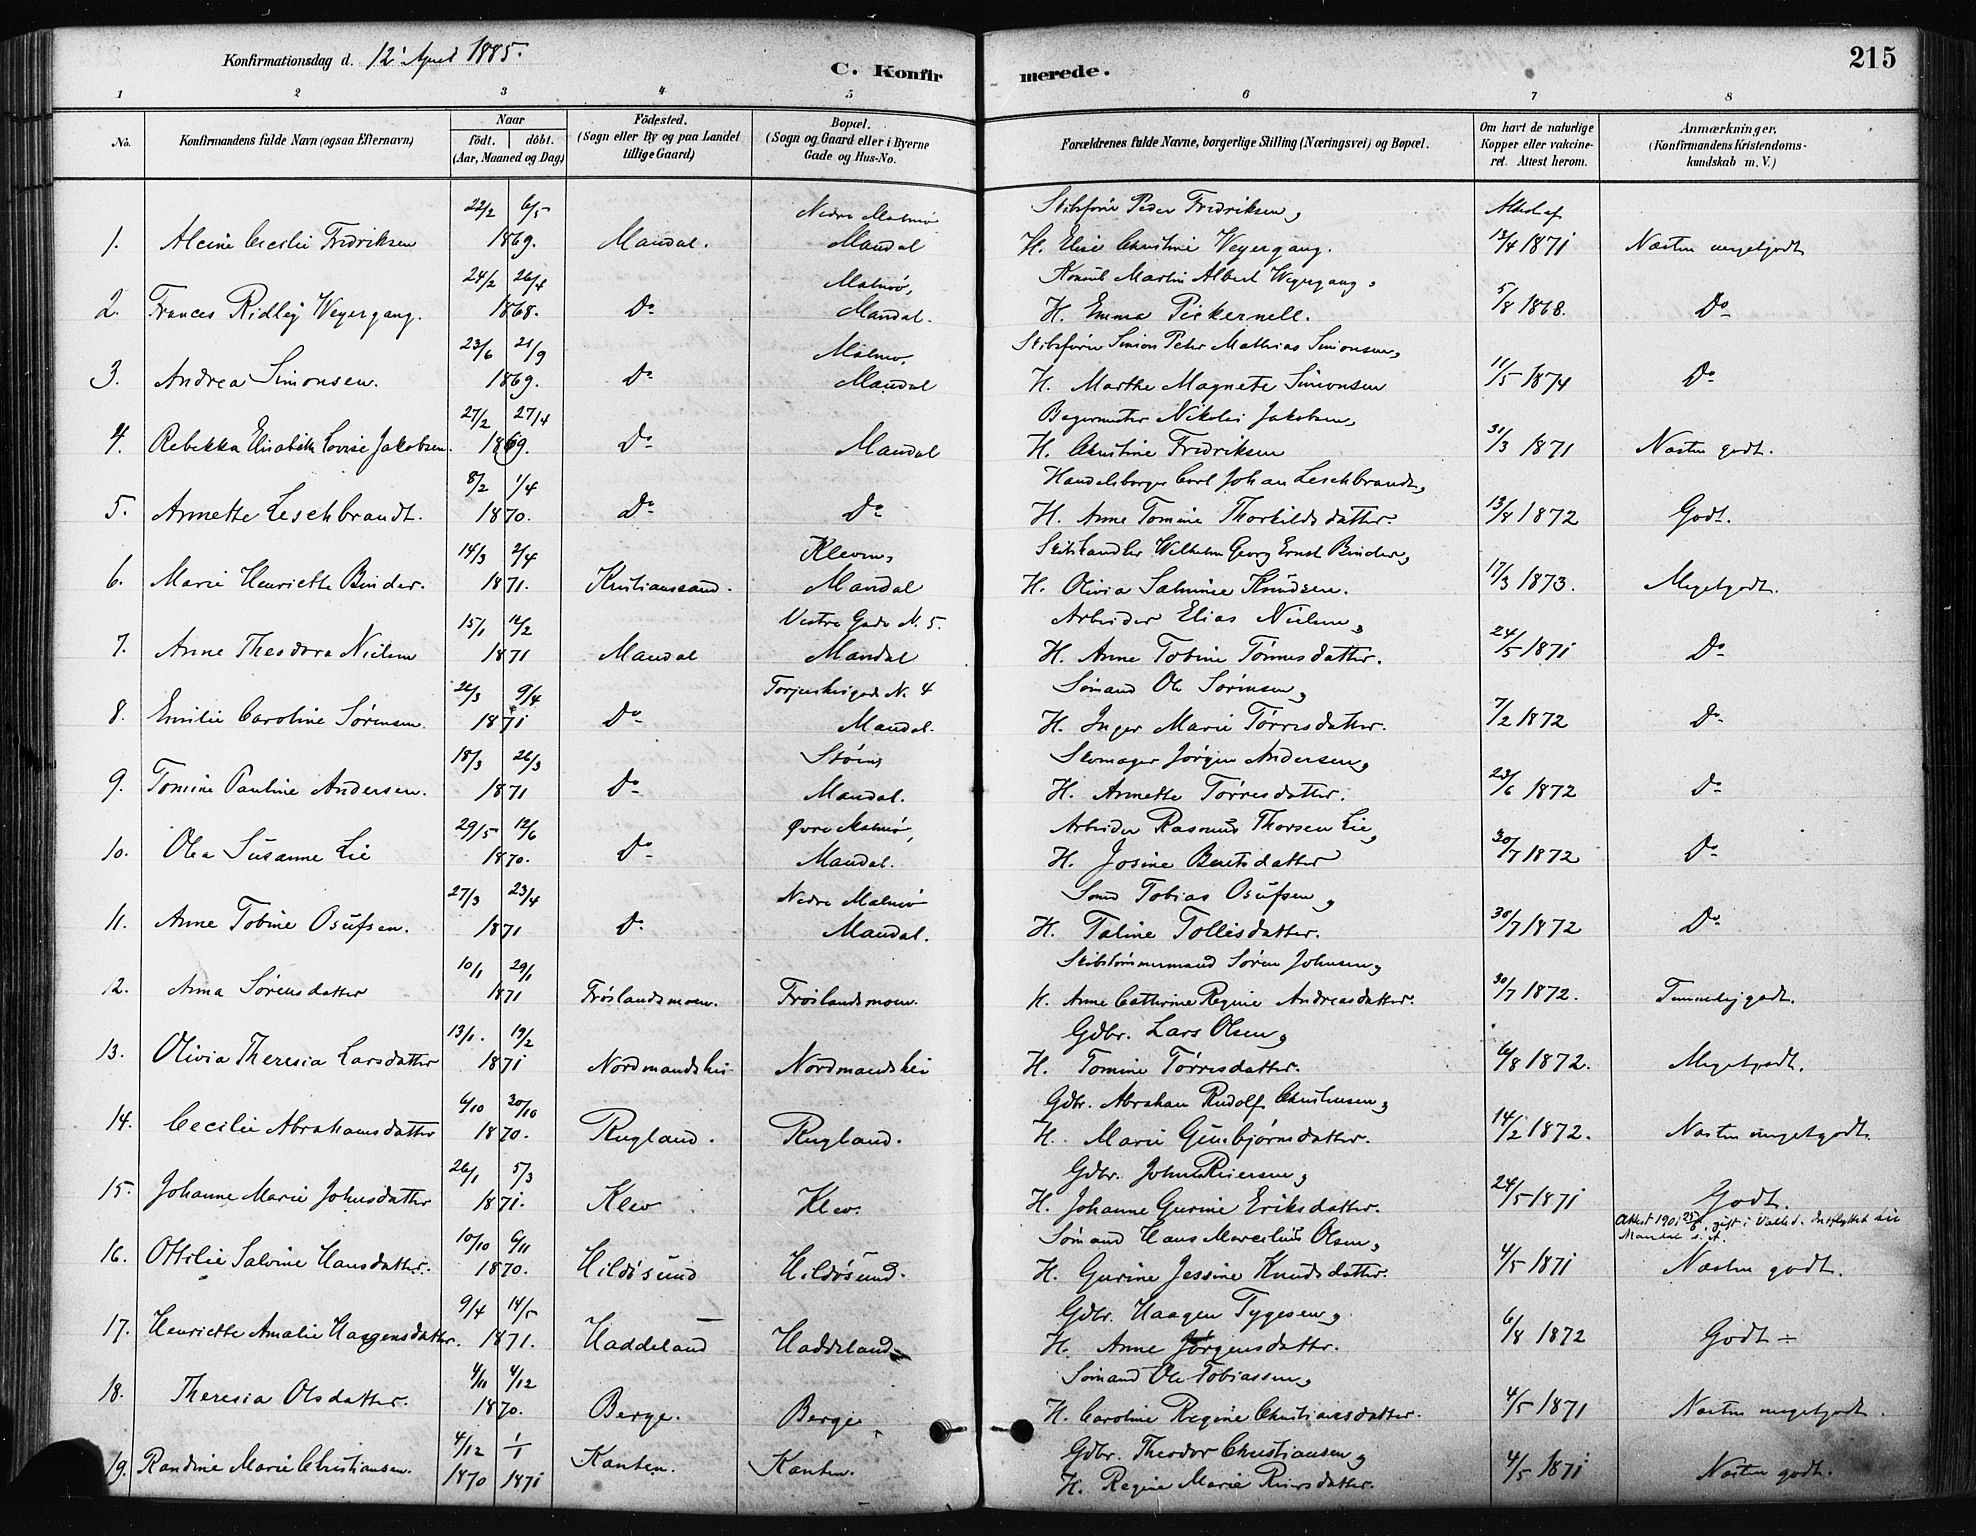 Konfirmationsdag d. 12' April 1885.
C. Konfirmerede.
215
1 2 3 4 5 6 7 8
No. Konfirmandens fulde Navn (ogsaa Efternavn) Naar födt. döbt. (Aar, Maaned og Dag) Födested. (Sogn eller By og paa Landet tillige Gaard) Bopæl. (Sogn og Gaard eller i Byerne Gade og Hus-No. Forældrenes fulde Navne, borgerlige Stilling (Næringsvei) og Bopæl. Om havt de naturlige Kopper eller vakcineret. Attest herom. Anmærkninger. (Konfirmandens Kristendomskundskab m. V.)
22/2 6/5 Nedre Malmø Skibsfører Peder Fredriksen, Attest af
1. Alcine Cecilie Fredriksen 1869. Mandal. Mandal H. Elise Christine Weyergang. 13/4 1871 Næsten megetgodt
24/2 26/4 Malmø, Konsul Martin Albert Weyergang,
2. Frances Ridley Weyergang. 1868. Do Mandal. H. Emma Pickernell. 5/8 1868. Do
23/6 21/9 Malmø, Skibsfører Simon Peter Mathias Simonsen,
3. Andrea Simonsen. 1869. Do Mandal H. Marthe Magnete Simonsen 11/5 1874 Do
27/2 27/4 Bagermester Nikolai Jakobsen,
4. Rebekka Elisabeth Lovise Jakobsen. 1869. Do Mandal H. Christine Fredriksen 31/3 1871 Næsten godt.
8/2 1/4 Handelsborger Carl Johan Leschbrandt,
5. Annette Leschbrandt. 1870. Do Do H. Anne Tomine Thorkildsdatter. 13/8 1872 Godt.
14/3 2/4 Kleven, Skibshandler Wilhelm Georg Ernst Binder,
6. Marie Henriette Binder. 1871. Kristianssand. Mandal H. Olivia Salmine Knudsen. 17/3 1873. Megetgodt.
15/1 12/2 Vestre Gade N. 5. Arbeider Elias Nielsen,
7. Anne Theodora Nielsen 1871 Mandal Mandal H. Anne Tobine Tønnesdatter. 24/5 1871 Do
26/3 9/4 Torjusheigade N. 4 Sømand Ole Sørensen,
8. Emilie Caroline Sørensen. 1871 Do Mandal. H. Inger Marie Tørresdatter. 7/2 1872 Do
18/3 26/3 Støen, Skomager Jørgen Andersen,
9. Tomine Pauline Andersen. 1871 Do Mandal. H. Annette Tørresdatter. 23/6 1872 Do
29/5 12/6 Øvre Malmø, Arbeider Rasmus Thorsen Lie,
10. Olea Susanne Lie 1870. Do Mandal. H. Josine Bentsdatter 30/7 1872 Do
27/3 23/4 Nedre Malmø Sømd Tobias Osufsen,
11. Anne Tobine Osufsen. 1871 Do Mandal. H. Taline Tollisdatter. 30/7 1872 Do
10/1 29/1 Skibstømmermand Søren Johnsen,
12. Anna Sørensdatter 1871 Frøslandsmoen. Frøslandsmoen. H. Anne Cathrine Regine Andreasdatter. 30/7 1872. Temmeligodt.
13/1. 19/2 Gdbr. Lars Olsen,
13. Olivia Theresia Larsdatter 1871 Nordmandshei Nordmandshei H. Tomine Tørresdatter. 6/8 1872. Megetgodt.
6/10 30/10 Gdbr. Abraham Rudolf Christensen,
14. Cecilie Abrahamsdatter 1870. Rugland. Rugland. H. Marie Gunbjørnsdatter. 14/2 1872. Næsten megetgodt.
26/1 5/3 Gdbr. John Reiersen,
15. Johanne Marie Johnsdatter 1871. Klev Klev. H. Johanne Gurine Eriksdatter. 24/5 1871 Godt.
10/10 6/11 Sømand Hans Marcelius Olsen, Attest 1901 25/6, gift i Indflyttet Mandal s. A.
16. Ottilie Salvine Hansdatter. 1870. Hildøsund Hildøsund. H. Gurine Jessine Knudsdatter. 4/5 1871 Næsten godt.
9/4 14/5 Gdbr. Haagen Tygesen,
17. Henriette Amalie Haagensdatter. 1871. Haddeland Haddeland. H. Anne Jørgensdatter. 6/8 1872 Godt ÷
4/11 4/12 Sømand Ole Tobiassen,
18. Theresia Olsdatter. 1870. Berge. Berge. H. Caroline Regine Christiansdatter. 4/5 1871 Næsten megetgodt.
4/12 1/1 Gdbr. Theodor Christiansen,
19. Randine Marie Christiansen. 1870 1871 Kanten. Kanten. H. Regine Marie Reiersdatter. 4/5 1871 Næsten godt.